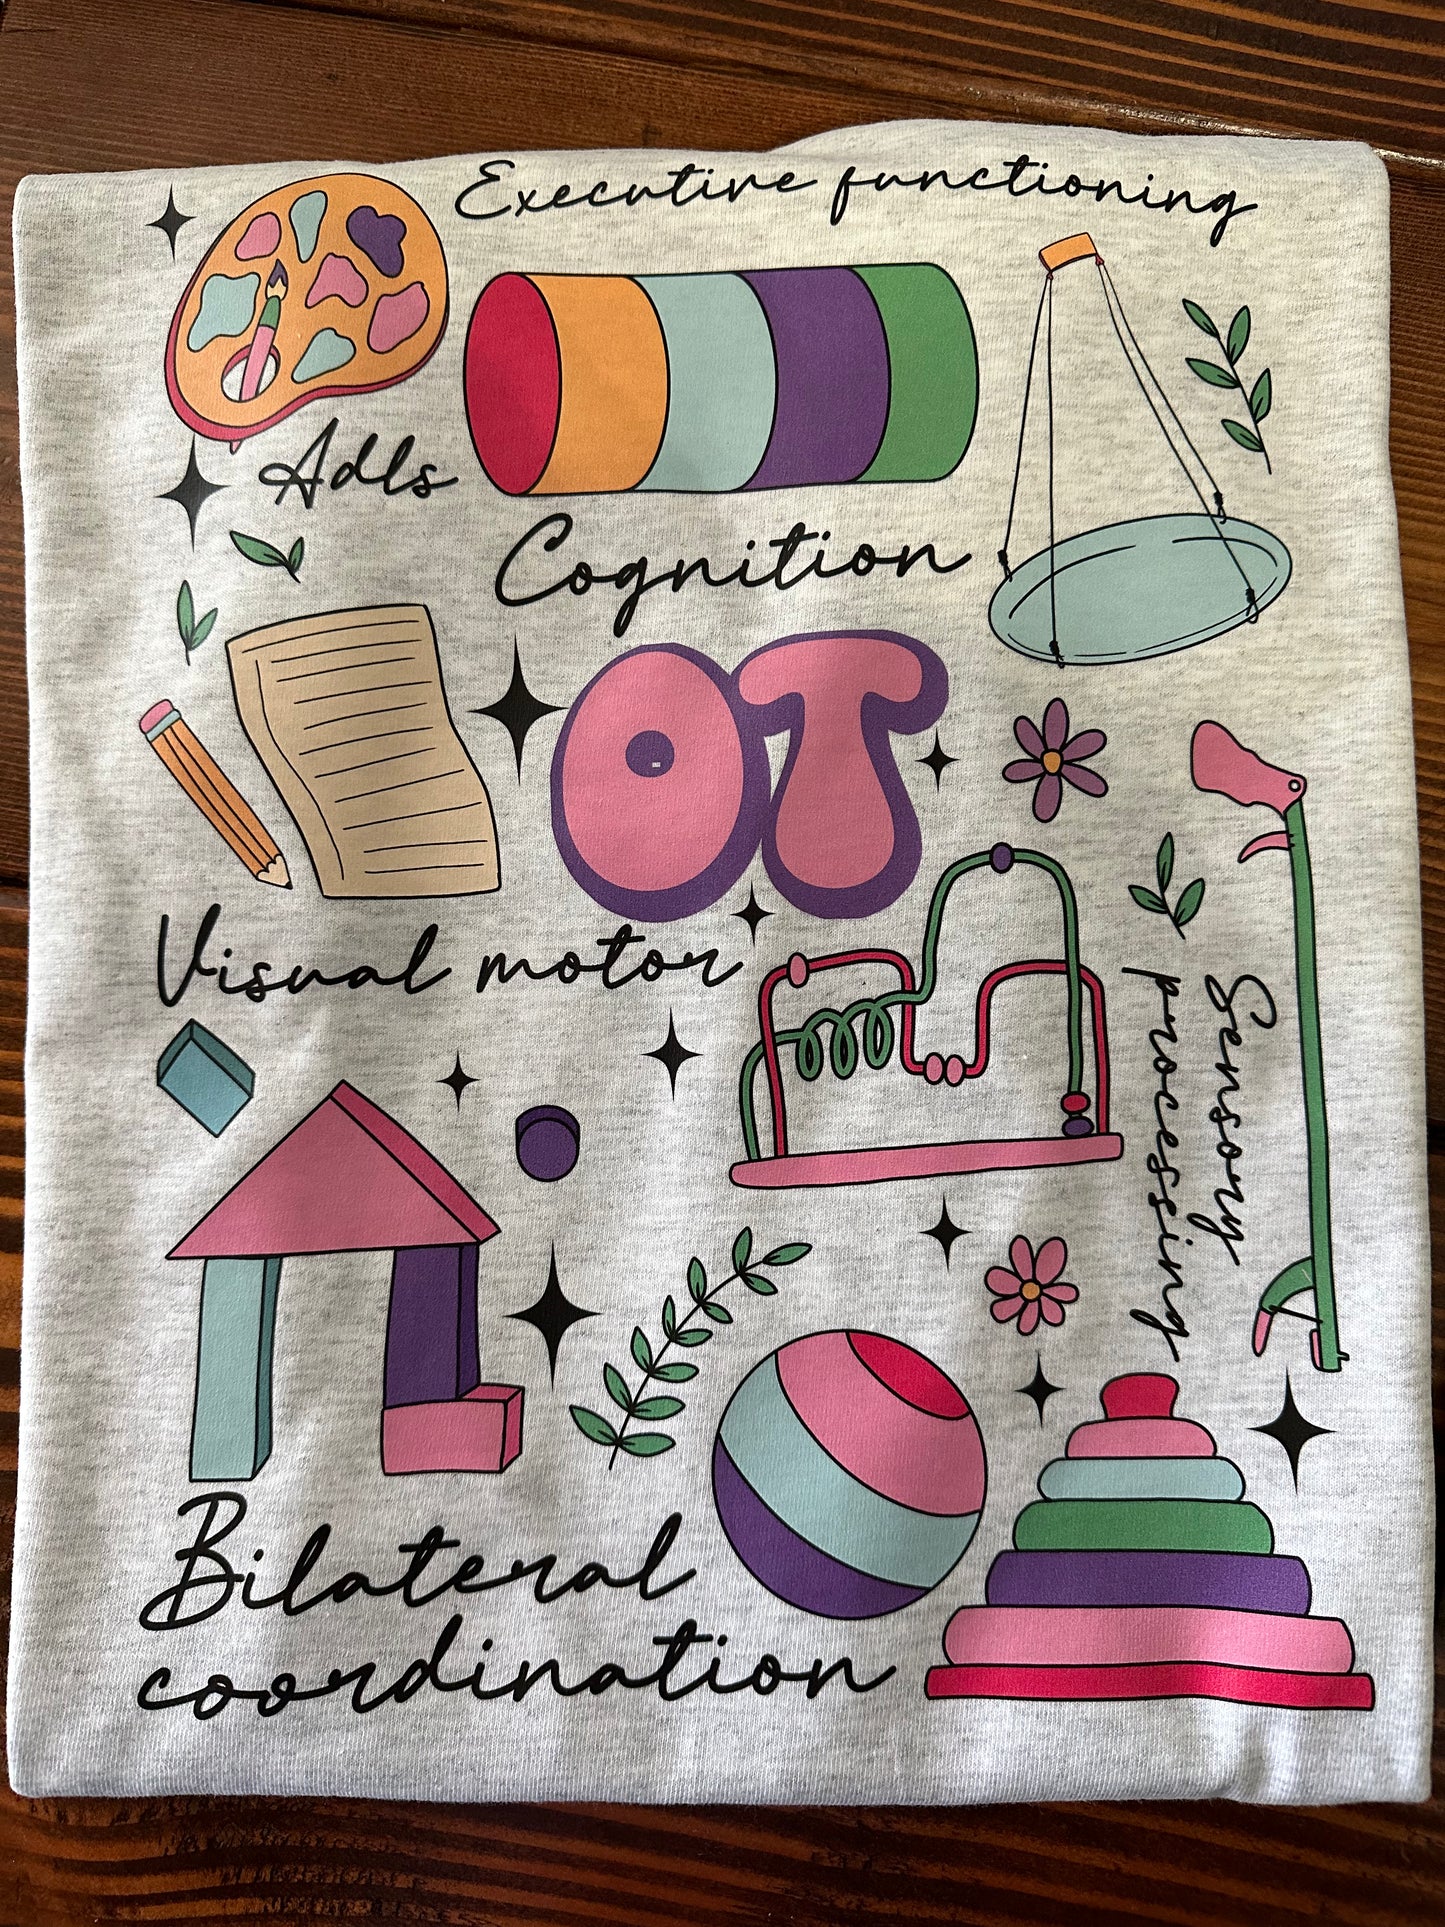 Executive functioning
Adls
Cognition
OT
Visual motor
Sensory
processing
Bilateral
coordination